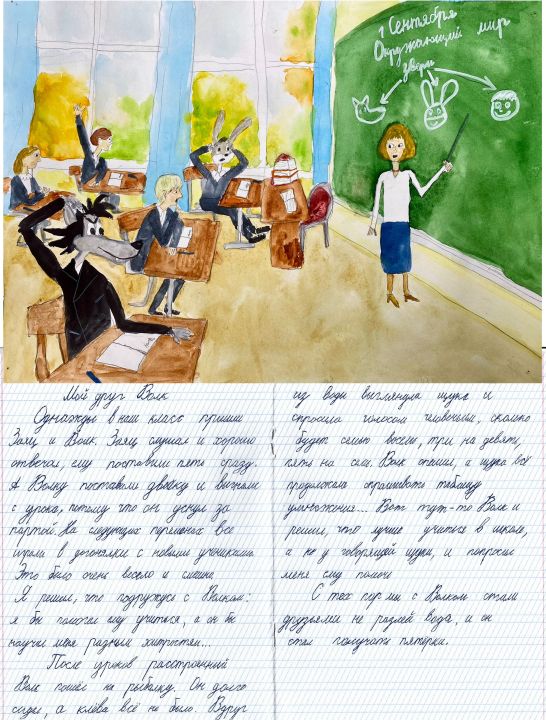 1 Сентября
Окружающий мир
звери
Мой друг Волк
Однажды в наш класс пришли
Заяц и Волк. Заяц слушал и хорошо
отвечал, ему поставили пять сразу.
А Волку поставили двойку и выгнали
с урока, потому что он уснул за
партой. На следующих переменах все
играли в догонялки с новыми учениками.
Это было очень весело и смешно.
Я решил, что подружусь с Волком:
я бы помогал ему учиться, а он бы
научил меня разным хитростям...
После уроков расстроенный
Волк пошёл на рыбалку. Он долго
сидел, а клёва всё не было. Вдруг
из воды выглянула щука и
спросила голосом человечьим, сколько
будет семью восемь, три на девять,
пять на семь. Волк опешил, а щука всё
продолжала спрашивать таблицу
умножения... Вот тут-то Волк и
решил, что лучше учиться в школе,
а не у говорящей щуки, и попросил
меня ему помочь.
С тех пор мы с Волком стали
друзьями не разлей вода, и он
стал получать пятёрки.